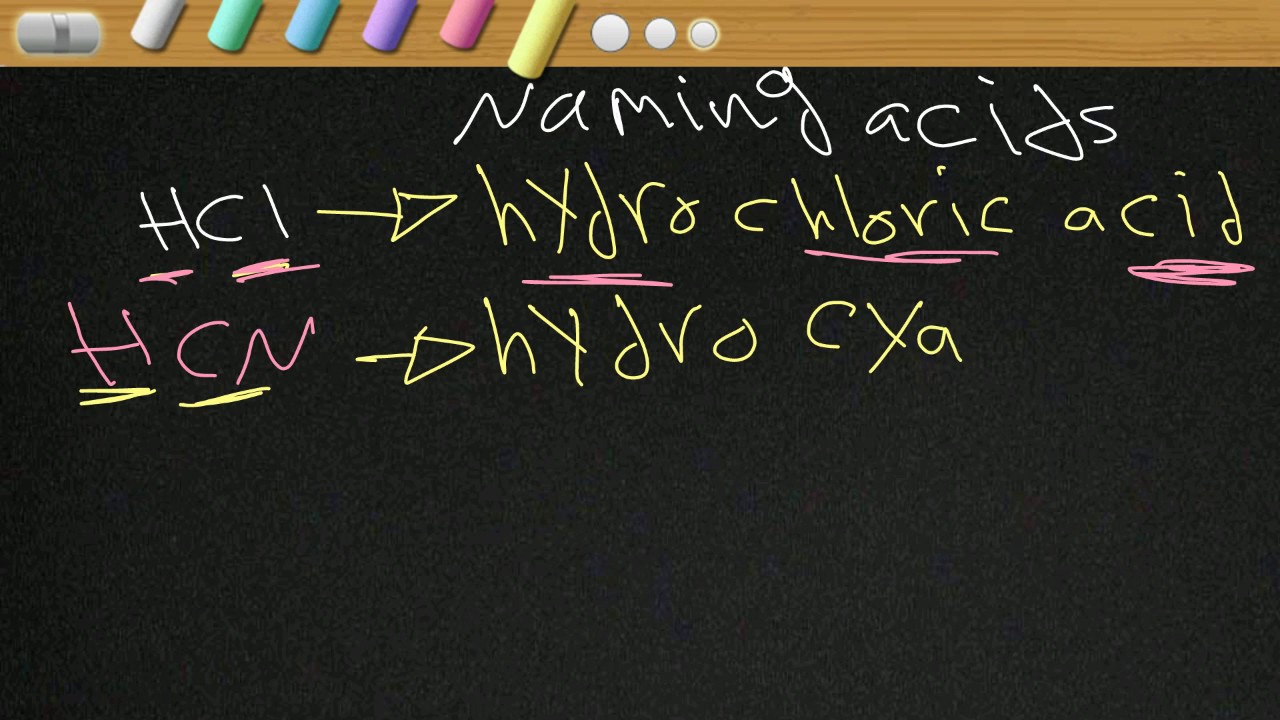 Naming acids
HCl → hydro chloric acid
HCN → hydro cya